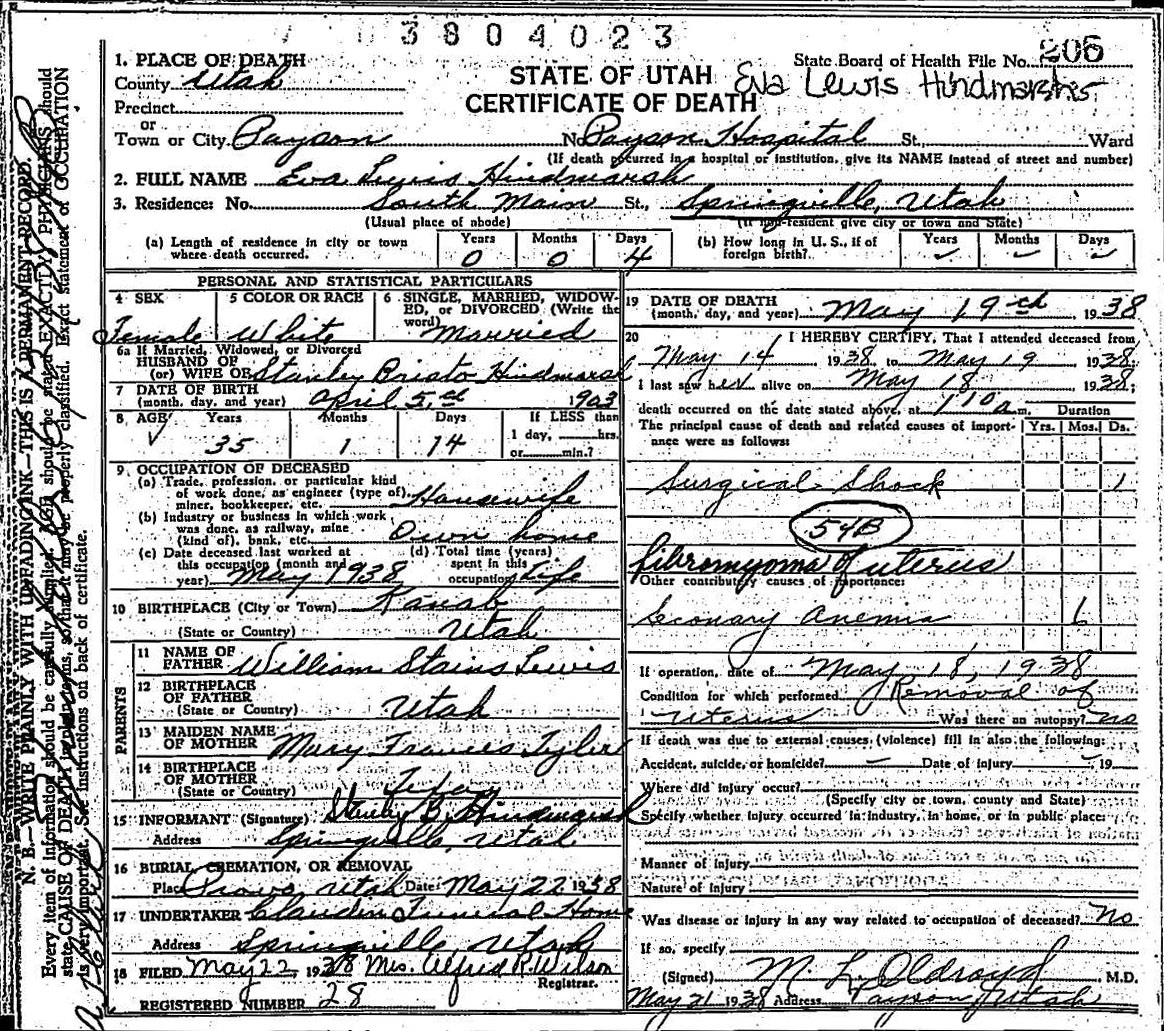 3804023
State Board of Health File No. 206
STATE OF UTAH
Eva Lewis Hindmarsh
CERTIFICATE OF DEATH
1. PLACE OF DEATH
County Utah
Precinct
or
Town or City Payson No. Payson Hospital St. Ward
(If death occurred in a hospital or institution, give its NAME instead of street and number)
2. FULL NAME Eva Lewis Hindmarsh
3. Residence: No. South Main St., Springville, Utah
(Usual place of abode) (If non-resident give city or town and State)
(a) Length of residence in city or town where death occurred. Years 0 Months 0 Days 4
(b) How long in U. S., if of foreign birth? Years - Months - Days -
PERSONAL AND STATISTICAL PARTICULARS
4 SEX Female
5 COLOR OR RACE White
6 SINGLE, MARRIED, WIDOWED, or DIVORCED (Write the word) Married
6a If Married, Widowed, or Divorced
HUSBAND OF
(or) WIFE OF Stanley Bristo Hindmarsh
7 DATE OF BIRTH
(month, day, and year) April 5 1903
8 AGE Years 35 Months 1 Days 14
If LESS than
1 day, hrs.
or min.?
9. OCCUPATION OF DECEASED
(a) Trade, profession, or particular kind
of work done, as engineer (type of),
miner, bookkeeper, etc. Housewife
(b) Industry or business in which work
was done, as railway, mine
(kind of), bank, etc. Own home
(c) Date deceased last worked at
this occupation (month and
year) May 1938
(d) Total time (years)
spent in this
occupation Life
10 BIRTHPLACE (City or Town) Kanab
(State or Country) Utah
PARENTS
11 NAME OF
FATHER William Stains Lewis
12 BIRTHPLACE
OF FATHER
(State or Country) Utah
13 MAIDEN NAME
OF MOTHER Mary Frances Tyler
14 BIRTHPLACE
OF MOTHER
(State or Country)
15 INFORMANT (Signature) Stanley B. Hindmarsh
Address Springville, Utah
16 BURIAL, CREMATION, OR REMOVAL
Place Provo, Utah Date May 22 1938
17 UNDERTAKER Funeral Home
Address Springville, Utah
18 FILED May 22, 1938 Mrs. Alfred R. Wilson
Registrar.
REGISTERED NUMBER 28
19 DATE OF DEATH
(month, day, and year) May 19th 1938
20 I HEREBY CERTIFY, That I attended deceased from
May 14 1938 to May 19 1938
I last saw her alive on May 18 1938;
death occurred on the date stated above, at 1 10 a m. Duration
The principal cause of death and related causes of importance were as follows: Yrs. Mos. Ds.
Surgical Shock 1
54B
fibromyoma of uterus
Other contributory causes of importance:
Seconary anemia 6
If operation, date of May 18, 1938
Condition for which performed Removal of
uterus Was there an autopsy? no
If death was due to external causes (violence) fill in also the following:
Accident, suicide, or homicide? - Date of injury - 19
Where did injury occur?
(Specify city or town, county and State)
Specify whether injury occurred in industry, in home, or in public place:
Manner of injury
Nature of injury
Was disease or injury in any way related to occupation of deceased? no
If so, specify
(Signed) M. L. Oldroyd M.D.
May 21 1938 Address Payson, Utah
N. B.—WRITE PLAINLY WITH UNFADING INK—THIS IS A PERMANENT RECORD.
Every item of information should be carefully supplied. AGE should be stated EXACTLY. PHYSICIANS should
state CAUSE OF DEATH in plain terms, so that it may be properly classified. Exact statement of OCCUPATION
is very important. See instructions on back of certificate.